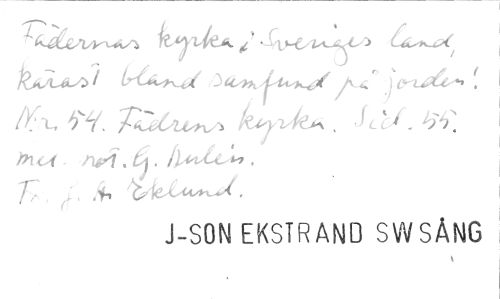 Fädernas kyrka i Sveriges land,
kärast bland samfund på jorden!
N:r. 54. Fädrens kyrka. Sid. 55.
mel. not. G. Aulén.
J. A. Eklund.
J-SON EKSTRAND SWSÅNG